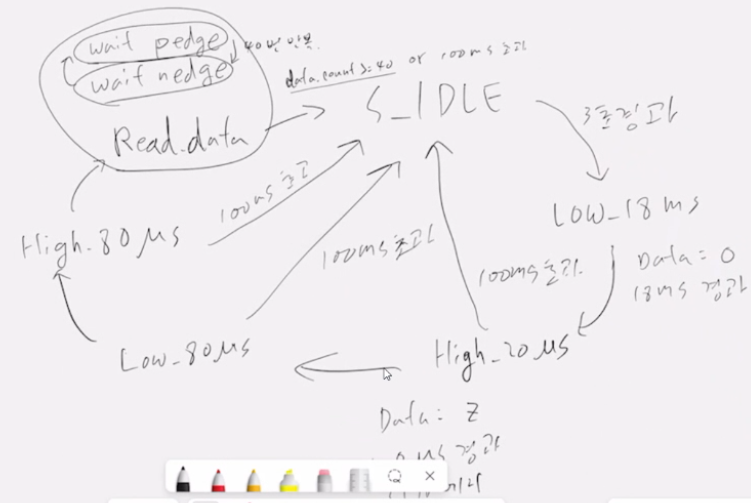 wait pedge
40번 반복.
wait nedge
data.count >= 40 or 100ms 초과
S_IDLE
Read.data
3초경과
100ms 초과
High_80μs
LOW_18ms
100ms 초과
100ms 초과
Data = 0
18ms 경과
Low_80μs
High_20μs
Data = Z
μs 경과